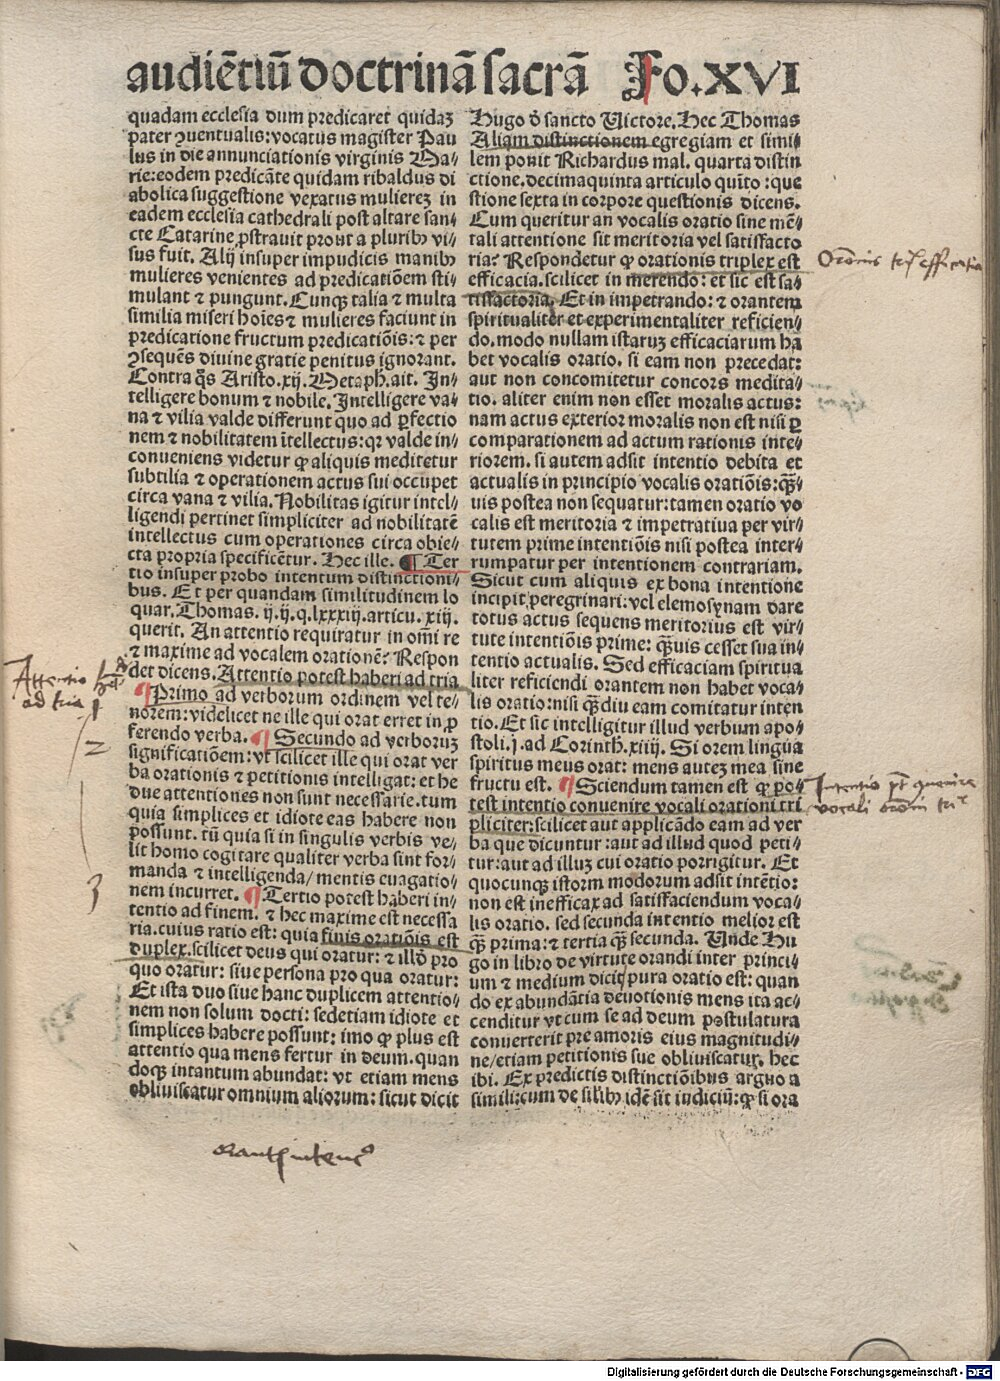 audiētiū doctrinā sacrā Fo.XVI
quadam ecclesia dum predicaret quidaꝫ
pater ꝯuentualis: vocatus magister Pau
lus in die annunciationis virginis Ma⸗
rie: eodem predicāte quidam ribaldus di
abolica suggestione vexatus mulierez in
eadem ecclesia cathedrali post altare san⸗
cte Catarine ꝓstrauit prout a pluribꝰ vi⸗
sus fuit. Alij insuper impudicis manibꝰ
mulieres venientes ad predicationēm sti⸗
mulant ⁊ pungunt. Cunqꝫ talia ⁊ multa
similia miseri hoīes ⁊ mulieres faciunt in
predicatione fructum predicatiōis: ⁊ per
ꝯsequēs diuine gratie penitus ignorant.
Contra q̄s Aristo. xij. Metaph. ait. In⸗
telligere bonum ⁊ nobile. Intelligere va⸗
na ⁊ vilia valde differunt quo ad ꝑfectio
nem ⁊ nobilitatem ītellectus: qꝛ valde in⸗
conueniens videtur ꝙ aliquis meditetur
subtilia ⁊ operationem actus sui occupet
circa vana ⁊ vilia. Nobilitas igitur intel⸗
ligendi pertinet simpliciter ad nobilitatē
intellectus cum operationes circa obie⸗
cta propria specificētur. Hec ille. ¶ Ter
tio insuper probo intentum distinctioni⸗
bus. Et per quandam similitudinem lo
quar. Thomas. ij. ij. q. lxxxiij. articu. xiij.
querit. An attentio requiratur in om̄i re
⁊ maxime ad vocalem orationē? Respon
det dicens. Attentio potest haberi ad tria
¶ Primo ad verborum ordinem vel te⸗
norem: videlicet ne ille qui orat erret in ꝓ
ferendo verba. ¶ Secundo ad verboruꝫ
significatiōem: vt scilicet ille qui orat ver
ba orationis ⁊ petitionis intelligat: et he
due attentiones non sunt necessarie. tum
quia simplices et idiote eas habere non
possunt. tū quia si in singulis verbis ve⸗
lit homo cogitare qualiter verba sint for⸗
manda ⁊ intelligenda/ mentis euagatio⸗
nem incurret. ¶ Tertio potest haberi in⸗
tentio ad finem. ⁊ hec maxime est necessa
ria. cuius ratio est: quia finis oratiōis est
duplex. scilicet deus qui oratur: ⁊ illd̄ pro
quo oratur: siue persona pro qua oratur:
Et ista duo siue hanc duplicem attentio⸗
nem non solum docti: sed etiam idiote et
simplices habere possunt: imo ꝙ plus est
attentio qua mens fertur in deum. quan
doqꝫ intantum abundat: vt etiam mens
obliuiscatur omnium aliorum: sicut dicit
Hugo d̄ sancto Uictore. Hec Thomas
Aliam distinctionem egregiam et simi⸗
lem ponit Richardus mal. quarta distin
ctione. decimaquinta articulo quīto: que
stione sexta in corpore questionis dicens.
Cum queritur an vocalis oratio sine mē⸗
tali attentione sit meritoria vel satisfacto
ria? Respondetur ꝙ orationis triplex est
efficacia. scilicet in merendo: et sic est sa⸗
tisfactoria. Et in impetrando: ⁊ orantem
spiritualiter et experimentaliter reficien⸗
do. modo nullam istaruꝫ efficaciarum ha
bet vocalis oratio. si eam non precedat:
aut non concomitetur concors medita⸗
tio. aliter enim non esset moralis actus:
nam actus exterior moralis non est nisi ꝑ
comparationem ad actum rationis inte⸗
riorem. si autem adsit intentio debita et
actualis in principio vocalis oratiōis: q̄ꝫ⸗
uis postea non sequatur: tamen oratio vo
calis est meritoria ⁊ impetratiua per vir⸗
tutem prime intentiōis nisi postea inter⸗
rumpatur per intentionem contrariam.
Sicut cum aliquis ex bona intentione
incipit peregrinari: vel elemosynam dare
totus actus sequens meritorius est vir⸗
tute intentiōis prime: q̄ꝫuis cesset sua in⸗
tentio actualis. Sed efficaciam spiritua
liter reficiendi orantem non habet voca⸗
lis oratio: nisi q̄ꝫdiu eam comitatur inten
tio. Et sic intelligitur illud verbum apo⸗
stoli. j. ad Corinth. xiiij. Si orem lingua
spiritus meus orat: mens autez mea sine
fructu est. ¶ Sciendum tamen est ꝙ po⸗
test intentio conuenire vocali orationi tri
pliciter: scilicet aut applicādo eam ad ver
ba que dicuntur: aut ad illud quod peti⸗
tur: aut ad illuꝫ cui oratio porrigitur. Et
quocunqꝫ istorm modorum adsit intētio:
non est inefficax ad satisfaciendum voca⸗
lis oratio. sed secunda intentio melior est
q̄ꝫ prima: ⁊ tertia q̄ꝫ secunda. Unde Hu
go in libro de virtute orandi inter princi⸗
um ⁊ medium dicit/ pura oratio est: quan
do ex abundātia deuotionis mens ita ac⸗
cenditur vt cum se ad deum postulatura
conuerterit pre amoris eius magnitudi⸗
ne/ etiam petitionis sue obliuiscatur. hec
ibi. Ex predictis distinctiōibus arguo a
simili: cum de silibꝰ idē sit iudiciū: ꝙ si ora
Attentio
ad tria 1
2
3
efficatia
Intentio
vocali
Digitalisierung gefördert durch die Deutsche Forschungsgemeinschaft - DFG